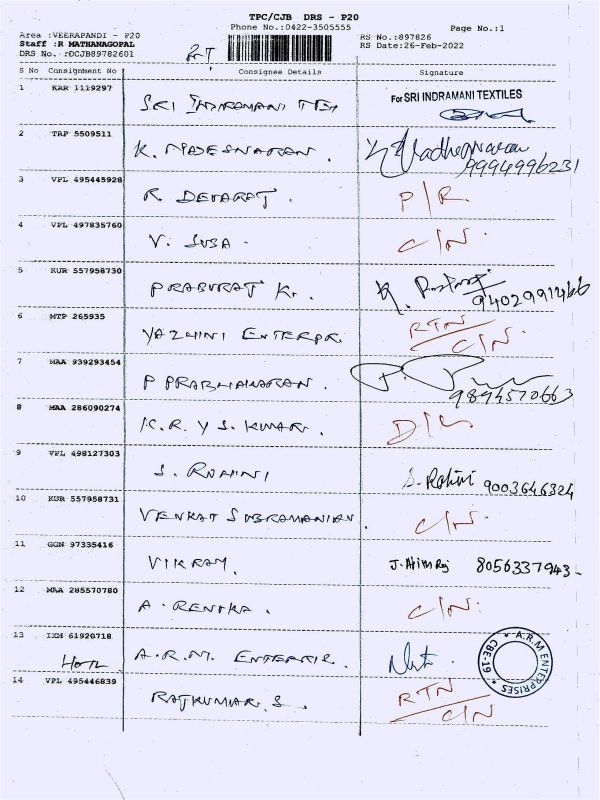 TPC/CJB DRS - P20
Phone No.:0422-3505555
Page No.:1
Area :VEERAPANDI - P20
RS No.:897826
Staff :R MATHANAGOPAL
RS Date:26-Feb-2022
DRS No. :DCJB89782601
S No Consignment No Consignee Details Signature
1 KRR 1119297 SRI INDRAMANI TEX For SRI INDRAMANI TEXTILES
2 TRP 5509511 K. MADESWARAN. 9994996231
3 VPL 495445928 R. DEVARAJ. P/R.
4 VPL 497835760 V. SUSA. C/N.
5 KUR 557958730 PRABURAJ K. 9402991466
6 MTP 265935 YAZHINI ENTERPR. RTN C/N.
7 MAA 939293454 P PRABHAKARAN. 9894570663
8 MAA 286090274 K.R. Y S. KUMAR. D/L
9 VPL 498127303 S. ROHINI S. Rohini 9003646324
10 KUR 557958731 VENKAT SUBRAMANIAN. C/N.
11 GGN 97335416 VIKRAM. 8056337943-
12 MAA 285570780 A. RENUKA. C/N.
13 IXM 61920718 A.R.M. ENTERPR. A.R.M ENTERPRISES CBE-19
14 VPL 495446839 RAJKUMAR. S. RTN C/N